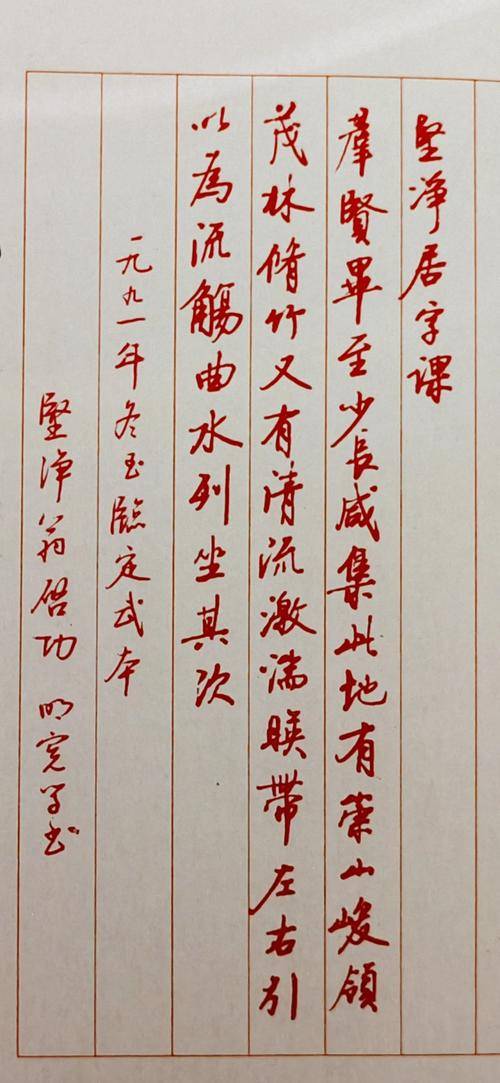 坚净居字课
群賢畢至少長咸集此地有崇山峻領
茂林脩竹又有清流激湍暎帶左右引
以為流觴曲水列坐其次
一九九一年冬至臨定武本
堅净翁启功 明宽学书